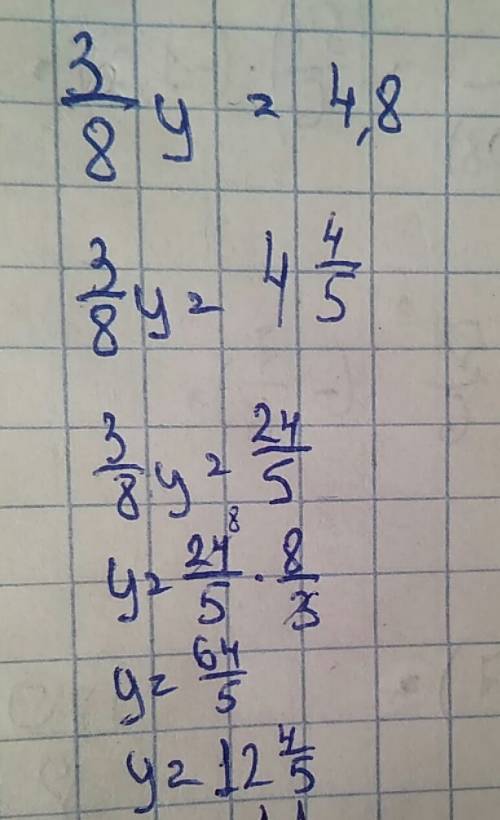 3/8 y = 4,8
3/8 y = 4 4/5
3/8 y = 24/5
y = 24/5 · 8/3 8
y = 64/5
y = 12 4/5